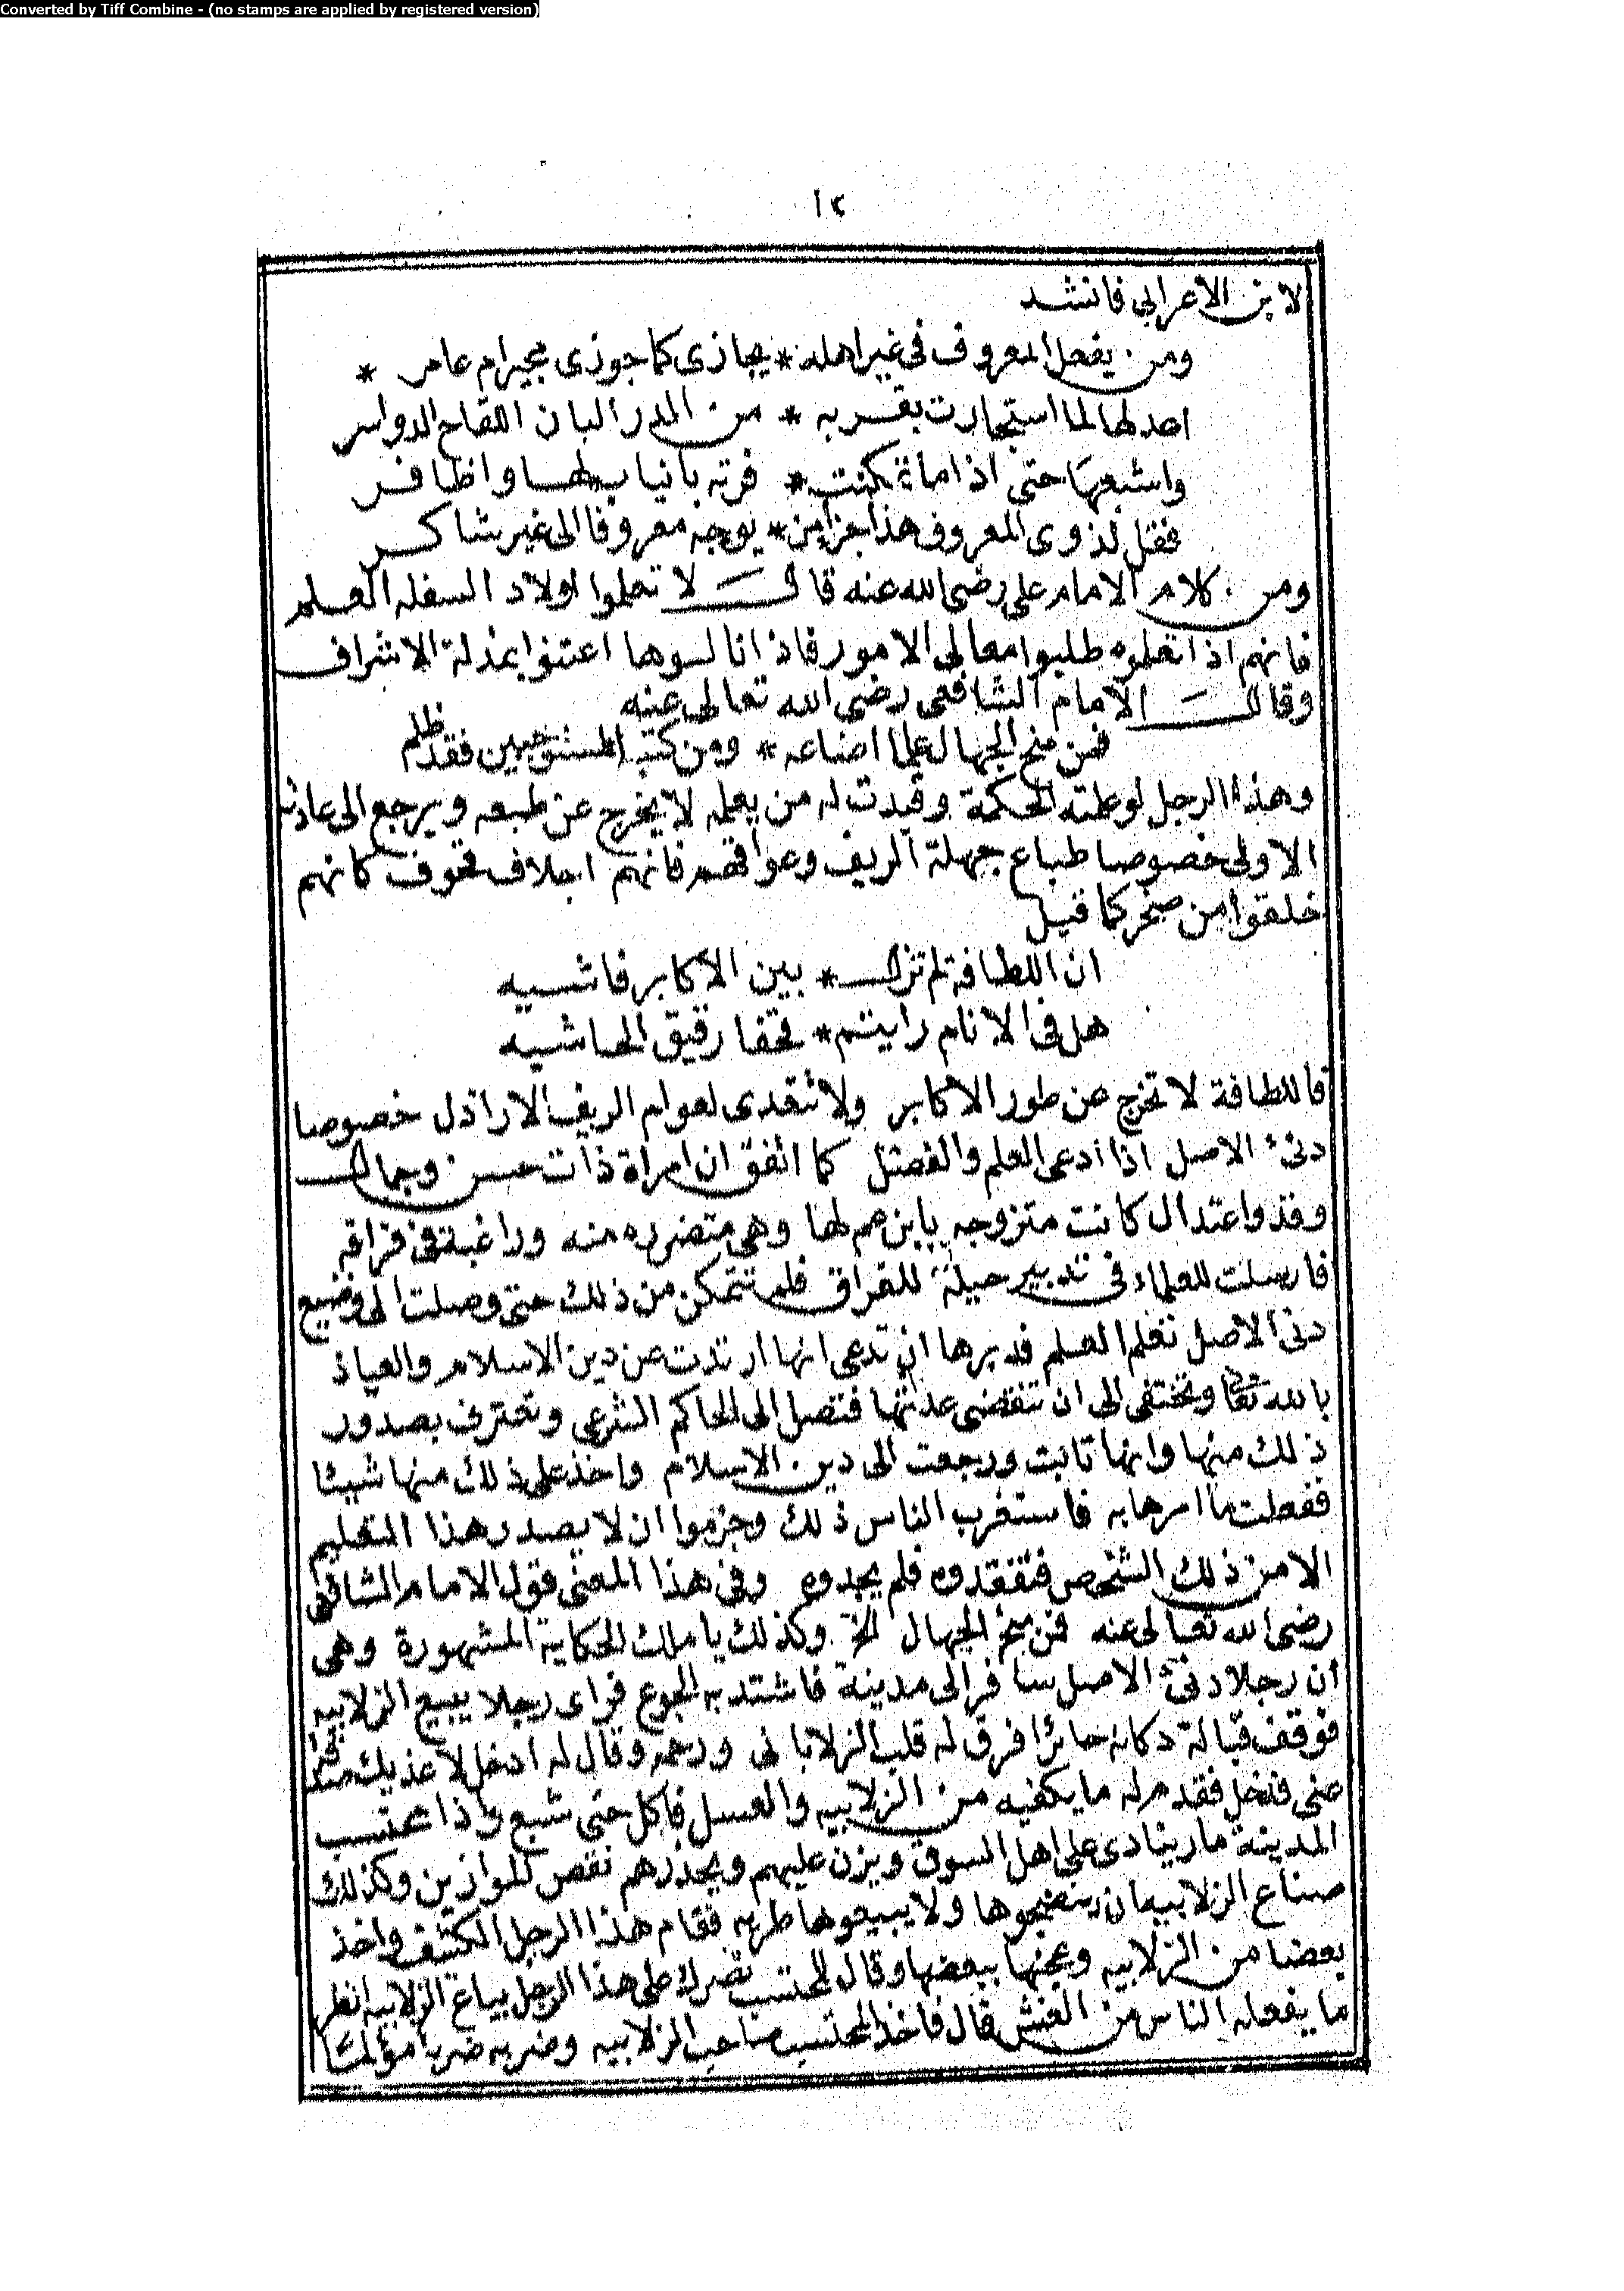 Converted by Tiff Combine - (no stamps are applied by registered version)
١٢
لابن الاعرابي فانشد
ومن يفعل المعروف في غير اهله * يجازى كما جوزى مجيرام عامر *
اعد لها لما استجارت بقربه * من الدر البان اللقاح الدواسر
واشبعها حتى اذا ما تمكنت * فرته بانياب لها واظافر
فقل لذوى المعروف هذا جزا من * يوجه معروفا الى غير شاكر
ومن كلام الامام على رضى الله عنه قال لا تعلموا اولاد السفله العلم
فانهم اذا تعلموه طلبوا معالى الامور فاذا نالسوها اعتنوا بمذلة الاشراف
وقال الامام الشافعى رضى الله تعالى عنه
فمن منح الجهال علما اضاعه * ومن كتم المستوجبين فقد ظلم
وهذا الرجل لو علمته الحكمة وقيدت له من يعلمه لا يخرج عن طبعه ويرجع الى عادته
الاولى خصوصا طباع جهلة الريف وعوا فانهم اجلاف قحوف كانهم
خلقوا من صخر كما قيل
ان اللطافة لم تزل * بين الاكابر فاشيه
هل فى الانام رايتم * قحفا رقيق الحاشيه
فاللطافة لا تخرج عن طور الاكابر ولا تتعدى لعوام الريف الاراذل خصوصا
دنئ الاصل اذا ادعى العلم والفضل كما اتفق ان امراة ذات حسن وجمال
وقد واعتدال كانت متزوجه بابن عم لها وهى متضرره منه وراغبة فى فراقه
فارسلت للعلماء فى تدبير حيلة للفراق فلم تتمكن من ذلك حتى وصلت الى وضيع
دنئ الاصل تعلم العلم فدبرها ان تدعى انها ارتدت عن دين الاسلام والعياذ
بالله تعا وتختفى الى ان تنقضى عدتها فتصل الى الحاكم الشرعى وتعترف بصدور
ذلك منها وانها تابت ورجعت الى دين الاسلام واخذ على ذلك منها شيئا
ففعلت ما امرها به فاستغرب الناس ذلك وجزموا ان لا يصدر هذا التعليم
الا من ذلك الشخص فتفقدوه فلم يجدوه وفى هذا المعنى قول الامام الشافعى
رضى الله تعالى عنه فمن منح الجهال الخ وكذلك يا ملك الحكاية المشهورة وهى
ان رجلا دنئ الاصل سافر الى مدينة فاشتد به الجوع فراى رجلا يبيع الزلابيه
فوقف قبالة دكانه حائرا فرق له قلب الزلابانى ورحمه وقال له ادخل لا غذيك
عنى فدخل فقدم له ما يكفيه من الزلابيه والعسل فاكل حتى شبع واذا بمحتسب
المدينة مار ينادى على اهل السوق ويزن عليهم ويحذرهم نقص الموازين وكذلك
صناع الزلابيه ان ينضجوها ولا يبيعوها طريه فقام هذا الرجل الكثيف واخذ
بعضا من الزلابيه وعجنها ببعضها وقال للمحتسب نصرك على هذا الرجل بياع الزلابيه انظر
ما يفعله الناس من الغش قال فاخذ المحتسب صاحب الزلابيه وضربه ضربا مؤلما